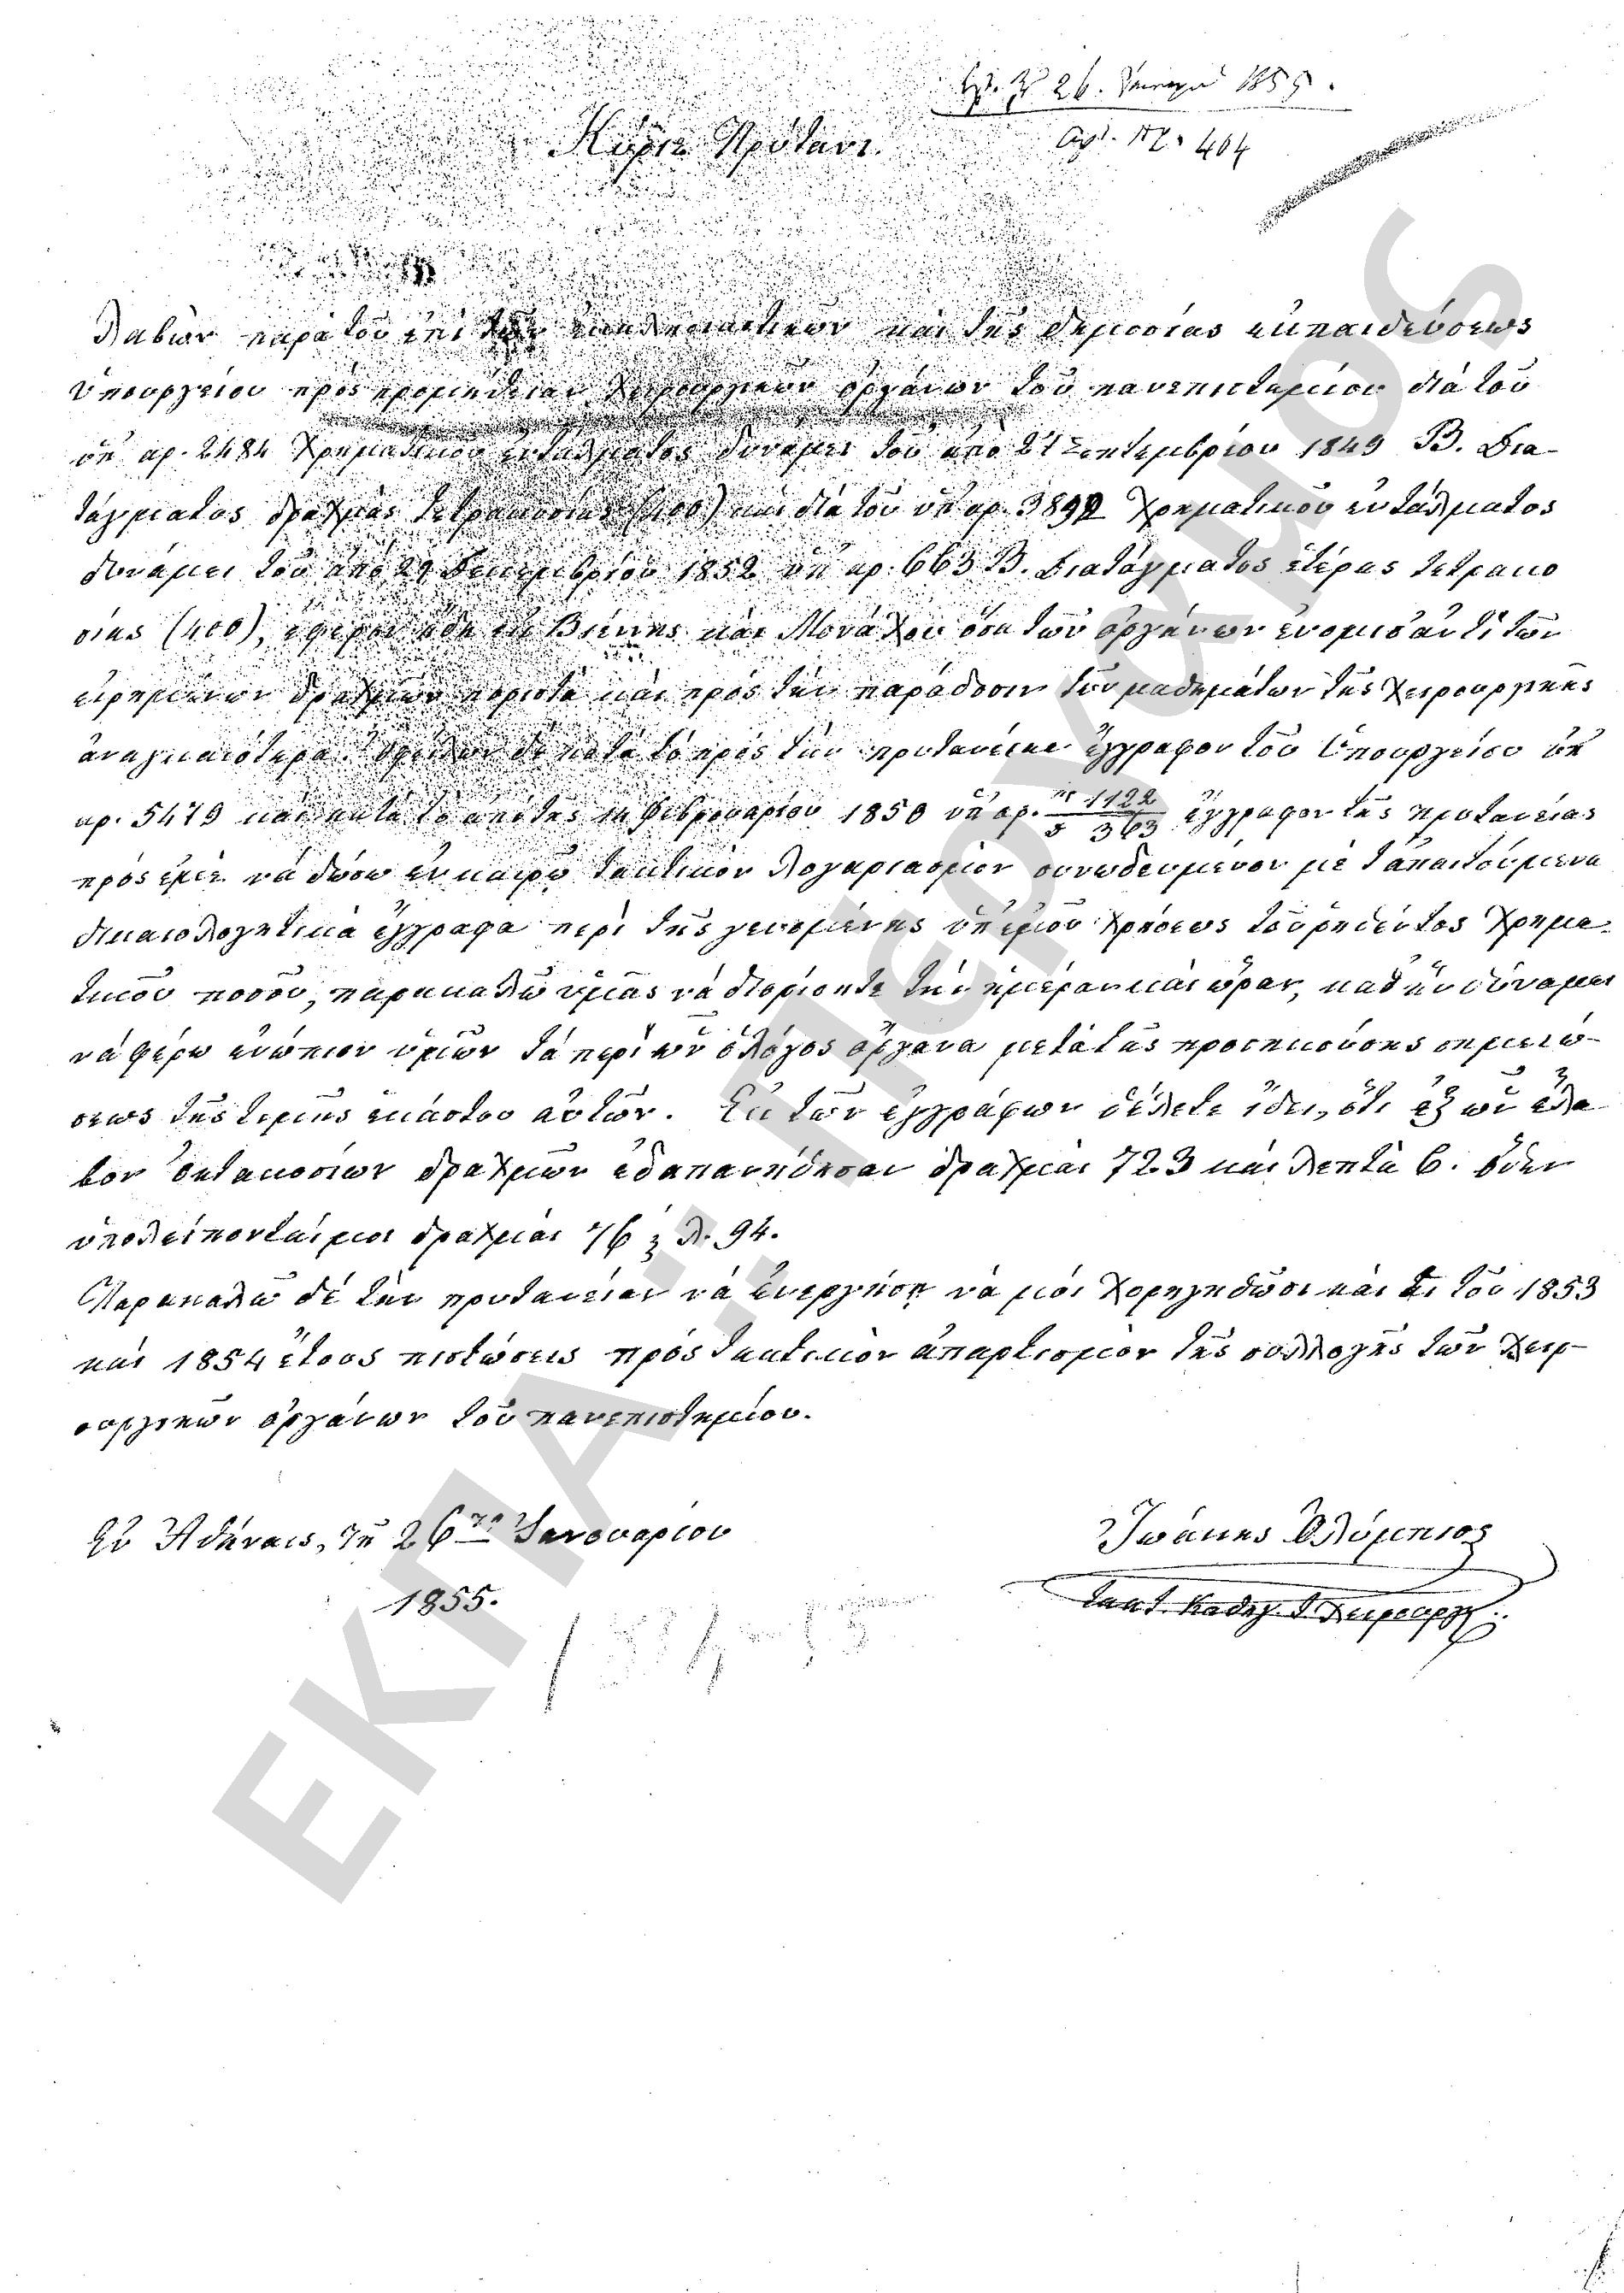 26. 1855.
Κύριε Πρύτανι.
Ἀρ. Π. 404
Λαβὼν παρὰ τοῦ ἐπὶ τῶν ἐκκλησιαστικῶν καὶ τῆς δημοσίας ἐκπαιδεύσεως
Ὑπουργείου πρὸς προμήθειαν χειρουργικῶν ὀργάνων τοῦ πανεπιστημίου διὰ τοῦ
ὑπ' αρ. 2484 χρηματικοῦ ἐντάλματος δυνάμει τοῦ ἀπὸ 27 Σεπτεμβρίου 1849 Β. Δια-
τάγματος δραχμὰς τετρακοσίας (400) καὶ διὰ τοῦ ὑπ' αρ. 3892 χρηματικοῦ ἐντάλματος
δυνάμει τοῦ ἀπὸ 29 Δεκεμβρίου 1852 ὑπ' αρ. 663 Β. Διατάγματος ἑτέρας τετρακο
σίας (400), ἔφερον ἤδη ἐκ Βιέννης καὶ Μονάχου ὅσα τῶν ὀργάνων ἐνόμισα ἀντὶ τῶν
εἰρημένων δραχμῶν ποριστὰ καὶ πρὸς τὴν παράδοσιν τῶν μαθημάτων τῆς χειρουργικῆς
ἀναγκαιότερα. Ὀφείλων δὲ κατὰ τὸ πρὸς τὴν πρυτανείαν ἔγγραφον τοῦ Ὑπουργείου ὑπ'
αρ. 5479 καὶ κατὰ τὸ ἀπὸ τῆς Φεβρουαρίου 1850 ὑπ' αρ. π 1122 / δ 363 ἔγγραφον τῆς πρυτανείας
πρὸς ἐμὲ νὰ δώσω ἐν καιρῷ τακτικὸν λογαριασμὸν συνωδευμένον μὲ τἀπαιτούμενα
δικαιολογητικὰ ἔγγραφα περὶ τῆς γενομένης ὑπ' ἐμοῦ χρήσεως τοῦ ῥηθέντος χρημα-
τικοῦ ποσοῦ, παρακαλῶ ὑμᾶς νὰ διορίσητε τὴν ἡμέραν καὶ ὥραν, καθ' ἣν δύναμαι
νὰ φέρω ἐνώπιον ὑμῶν τὰ περὶ ὧν ὁ λόγος ὄργανα μετὰ τῆς προσηκούσης σημειώ-
σεως τῆς τιμῆς ἑκάστου αὐτῶν. Ἐκ τῶν ἐγγράφων θέλετε ἰδεῖ, ὅτι ἐξ ὧν ἔλα-
βον ὀκτακοσίων δραχμῶν ἐδαπανήθησαν δραχμαὶ 723 καὶ λεπτὰ 6. ὅθεν
ὑπολείπονταί μοι δραχμαὶ 76 λ. 94.
Παρακαλῶ δὲ τὴν πρυτανείαν νὰ ἐνεργήσῃ νὰ μοὶ χορηγηθῶσι καὶ αἱ τοῦ 1853
καὶ 1854 ἔτους πιστώσεις πρὸς τακτικὸν ἀπαρτισμὸν τῆς συλλογῆς τῶν χειρ-
ουργικῶν ὀργάνων τοῦ πανεπιστημίου.
Ἐν Ἀθήναις, τῇ 26 Ἰανουαρίου
1855.
Ἰωάννης Ὀλύμπιος
τακτ. Καθηγ. τ. χειρουργ.
ΕΚΠΑ:. Ιστορικό